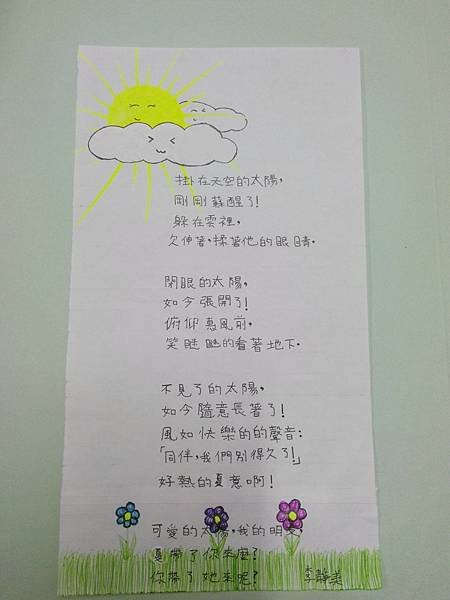 掛在天空的太陽,
剛剛蘇醒了!
躲在雲裡,
欠伸著,揉著他的眼睛.
閉眼的太陽,
如今張開了!
俯仰惠風前,
笑瞇瞇的看著地下.
不見了的太陽,
如今隨意長著了!
風如快樂的的聲音:
「同伴,我們別得久了!」
好熱的夏意啊!
可愛的太陽,我的朋友,
夏帶了你來麼?
你帶了她來呢?
李靜美